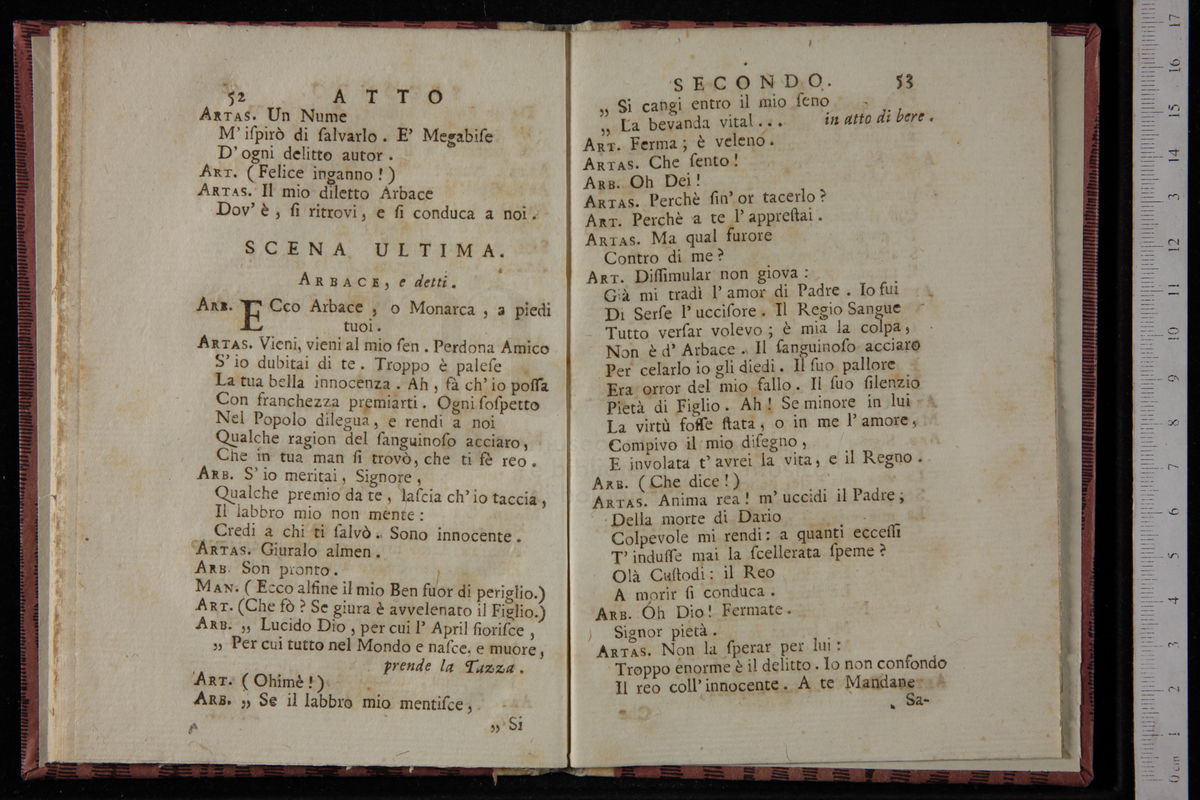 52 ATTO
ARTAS. Un Nume
M' iſpirò di ſalvarlo . E' Megabiſe
D' ogni delitto autor .
ART. ( Felice inganno ! )
ARTAS. Il mio diletto Arbace
Dov' è , ſi ritrovi , e ſi conduca a noi .
SCENA ULTIMA.
ARBACE, e detti .
ARB. ECco Arbace , o Monarca , a piedi
tuoi .
ARTAS. Vieni, vieni al mio ſen . Perdona Amico
S' io dubitai di te . Troppo è paleſe
La tua bella innocenza . Ah , fà ch' io poſſa
Con franchezza premiarti . Ogni ſoſpetto
Nel Popolo dilegua , e rendi a noi
Qualche ragion del ſanguinoſo acciaro ,
Che in tua man ſi trovò, che ti fè reo .
ARB. S' io meritai , Signore ,
Qualche premio da te , laſcia ch' io taccia ,
Il labbro mio non mente :
Credi a chi ti ſalvò . Sono innocente .
ARTAS. Giuralo almen .
ARB. Son pronto .
MAN. ( Ecco alfine il mio Ben fuor di periglio.)
ART. (Che fò ? Se giura è avvelenato il Figlio.)
ARB. „ Lucido Dio , per cui l' April fioriſce ,
„ Per cui tutto nel Mondo e naſce, e muore ,
prende la Tazza .
ART. ( Ohimè ! )
ARB. „ Se il labbro mio mentiſce ,
„ Si
SECONDO. 53
„ Si cangi entro il mio ſeno
„ La bevanda vital . . . in atto di bere .
ART. Ferma ; è veleno .
ARTAS. Che ſento !
ARB. Oh Dei !
ARTAS. Perchè ſin' or tacerlo ?
ART. Perchè a te l' appreſtai .
ARTAS. Ma qual furore
Contro di me ?
ART. Diſſimular non giova :
Già mi tradì l' amor di Padre . Io fui
Di Serſe l' ucciſore . Il Regio Sangue
Tutto verſar volevo ; è mia la colpa ,
Non è d' Arbace . Il ſanguinoſo acciaro
Per celarlo io gli diedi . Il ſuo pallore
Era orror del mio fallo . Il ſuo ſilenzio
Pietà di Figlio . Ah ! Se minore in lui
La virtù foſſe ſtata , o in me l' amore ,
Compivo il mio diſegno ,
E involata t' avrei la vita , e il Regno .
ARB. ( Che dice ! )
ARTAS. Anima rea ! m' uccidi il Padre ;
Della morte di Dario
Colpevole mi rendi : a quanti ecceſſi
T' induſſe mai la ſcellerata ſpeme ?
Olà Cuſtodi : il Reo
A morir ſi conduca .
ARB. Oh Dio ! Fermate .
Signor pietà .
ARTAS. Non la ſperar per lui :
Troppo enorme è il delitto . Io non confondo
Il reo coll' innocente . A te Mandane
Sa-
17
16
15
14
13
12
11
10
9
8
7
6
5
4
3
2
1
0 cm